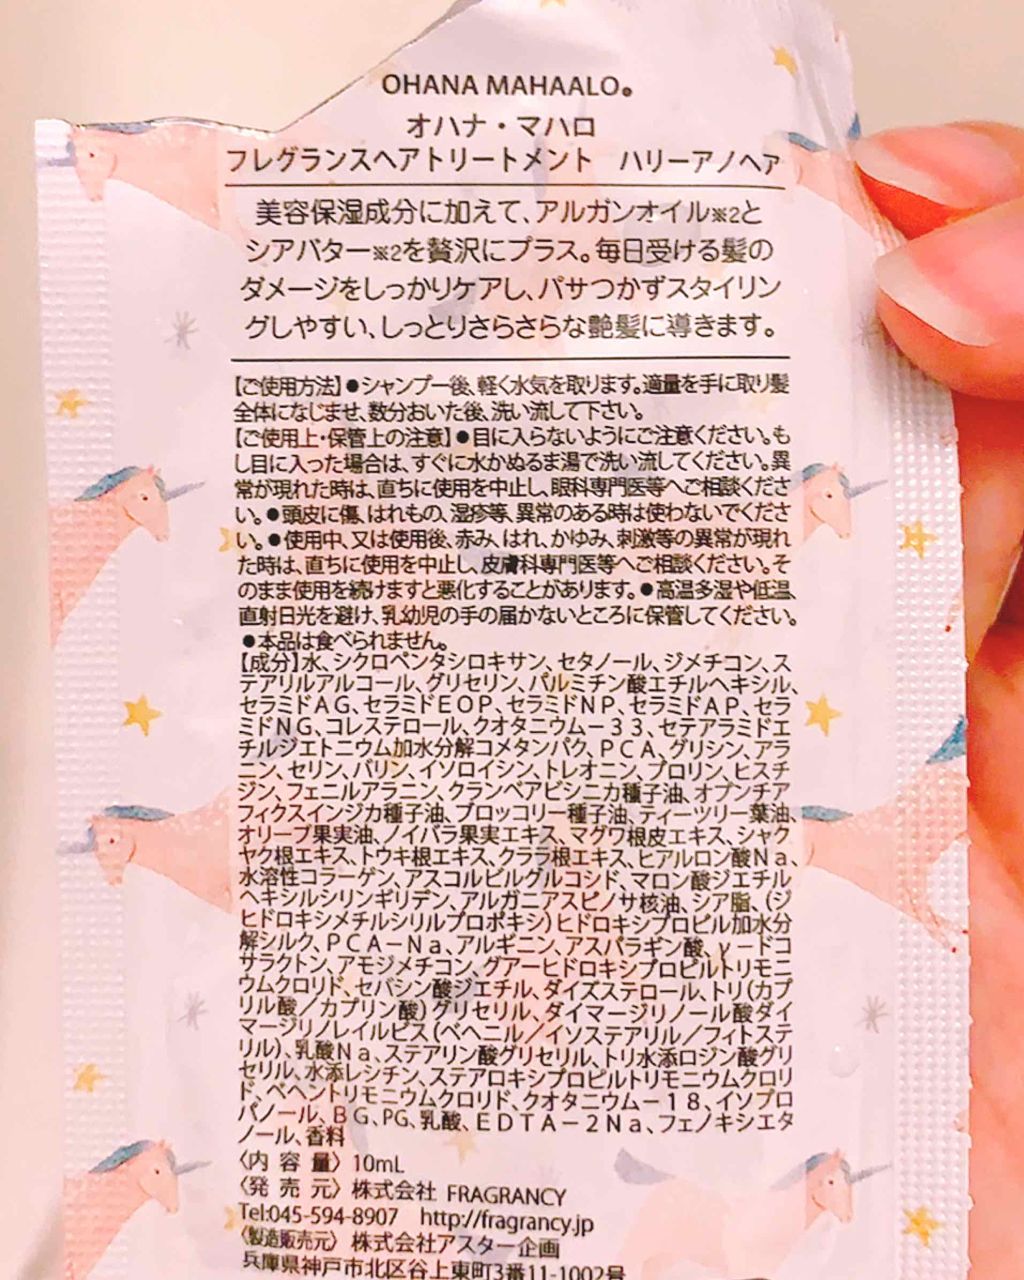 OHANA MAHAALO。
オハナ・マハロ
フレグランスヘアトリートメント　ハリーアノヘア
美容保湿成分に加えて、アルガンオイル※2と
シアバター※2を贅沢にプラス。毎日受ける髪の
ダメージをしっかりケアし、パサつかずスタイリン
グしやすい、しっとりさらさらな艶髪に導きます。
【ご使用方法】●シャンプー後、軽く水気を取ります。適量を手に取り髪
全体になじませ、数分おいた後、洗い流して下さい。
【ご使用上・保管上の注意】●目に入らないようにご注意ください。も
し目に入った場合は、すぐに水かぬるま湯で洗い流してください。異
常が現れた時は、直ちに使用を中止し、眼科専門医等へご相談くださ
い。●頭皮に傷、はれもの、湿疹等、異常のある時は使わないでくださ
い。●使用中、又は使用後、赤み、はれ、かゆみ、刺激等の異常が現れ
た時は、直ちに使用を中止し、皮膚科専門医等へご相談ください。そ
のまま使用を続けますと悪化することがあります。●高温多湿や低温、
直射日光を避け、乳幼児の手の届かないところに保管してください。
●本品は食べられません。
【成分】水、シクロペンタシロキサン、セタノール、ジメチコン、ス
テアリルアルコール、グリセリン、パルミチン酸エチルヘキシル、
セラミドAG、セラミドEOP、セラミドNP、セラミドAP、セラ
ミドNG、コレステロール、クオタニウム－33、セテアラミドエ
チルジエトニウム加水分解コメタンパク、PCA、グリシン、アラ
ニン、セリン、バリン、イソロイシン、トレオニン、プロリン、ヒスチ
ジン、フェニルアラニン、クランベアビシニカ種子油、オプンチア
フィクスインジカ種子油、ブロッコリー種子油、ティーツリー葉油、
オリーブ果実油、ノイバラ果実エキス、マグワ根皮エキス、シャク
ヤク根エキス、トウキ根エキス、クララ根エキス、ヒアルロン酸Na、
水溶性コラーゲン、アスコルビルグルコシド、マロン酸ジエチル
ヘキシルシリンギリデン、アルガニアスピノサ核油、シア脂、(ジ
ヒドロキシメチルシリルプロポキシ)ヒドロキシプロピル加水分
解シルク、PCA－Na、アルギニン、アスパラギン酸、γ－ドコ
サラクトン、アモジメチコン、グアーヒドロキシプロピルトリモニ
ウムクロリド、セバシン酸ジエチル、ダイズステロール、トリ(カプ
リル酸／カプリン酸)グリセリル、ダイマージリノール酸ダイ
マージリノレイルビス(ベヘニル／イソステアリル／フィトステ
リル)、乳酸Na、ステアリン酸グリセリル、トリ水添ロジン酸グリ
セリル、水添レシチン、ステアロキシプロピルトリモニウムクロリ
ド、ベヘントリモニウムクロリド、クオタニウム－18、イソプロ
パノール、BG、PG、乳酸、EDTA－2Na、フェノキシエタ
ノール、香料
〈内 容 量〉10mL
〈発 売 元〉株式会社 FRAGRANCY
Tel:045-594-8907　http://fragrancy.jp
〈製造販売元〉株式会社アスター企画
兵庫県神戸市北区谷上東町3番11-1002号